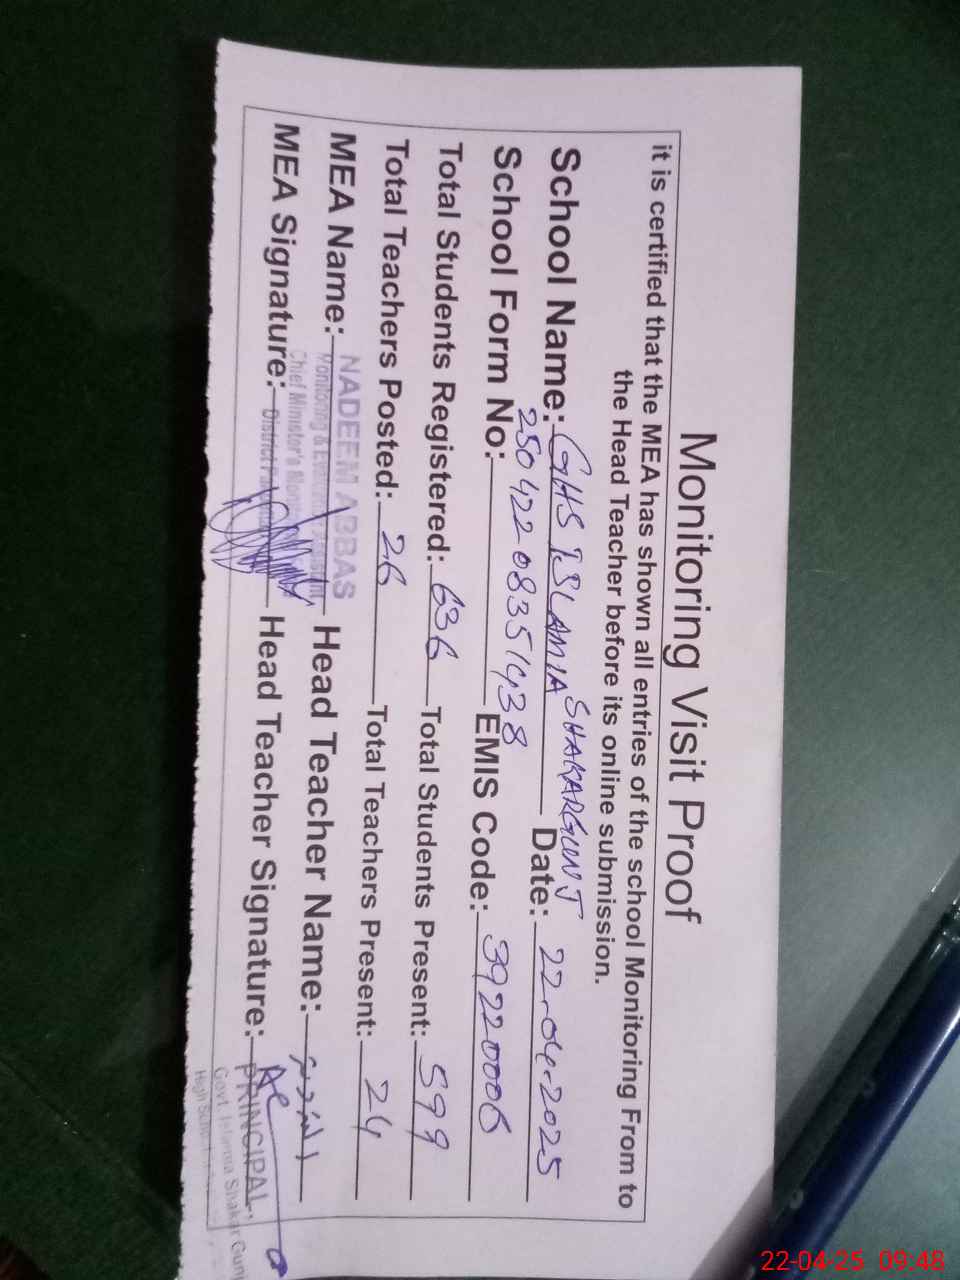 Monitoring Visit Proof
it is certified that the MEA has shown all entries of the school Monitoring From to
the Head Teacher before its online submission.
School Name: GHS ISLAMIA SHAKARGUNJ Date: 22-04-2025
School Form No: 25042208351438 EMIS Code: 39220006
Total Students Registered: 636 Total Students Present: 599
Total Teachers Posted: 26 Total Teachers Present: 24
MEA Name: NADEEM ABBAS Head Teacher Name:
Monitoring & Evaluation Assistant
Chief Minister's
MEA Signature: District Head Teacher Signature: PRINCIPAL
Govt. Islamia Shakar Gunj
High
22-04-25 09:48